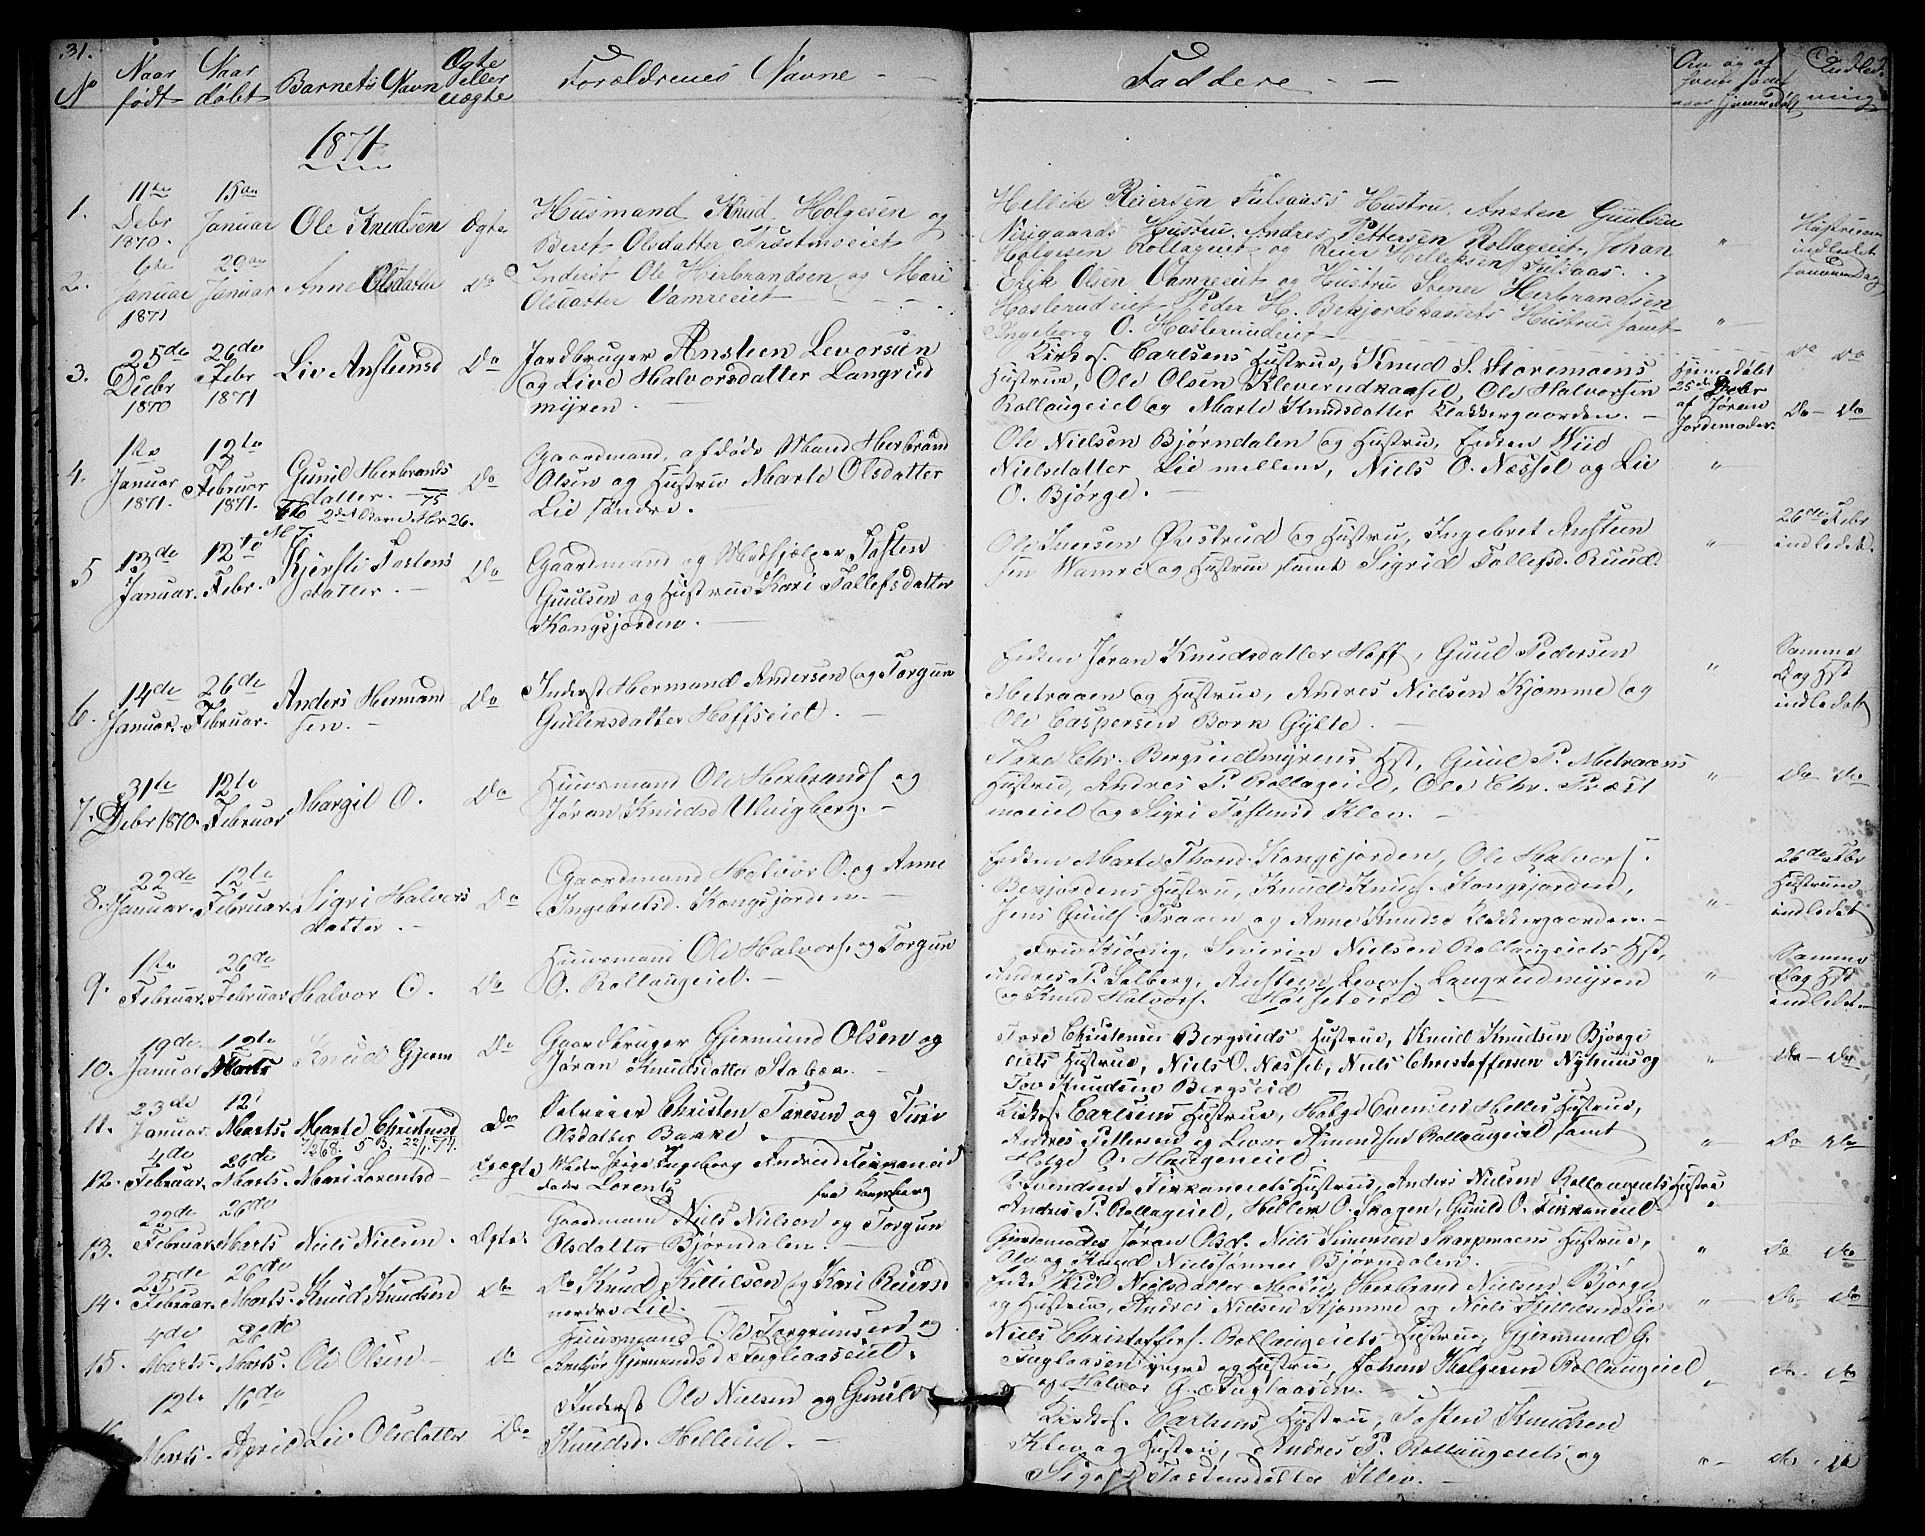 31.
No
Naar født
Naar døbt
Barnets Navn
Ægte eller uægte
Forældrenes Navne
Faddere
Om og af hvem hjemmedøbt
Indledning
1871
1. 11te Debr 1870. 15de Januar Ole Knudsen Ægte
Husmand Knud Holgesen og
Beret Olsdatter Præstmoeiet
Hellik Reiersen Fulsaass Hustru. Ansten Guulsen
Nirigaards Hustru. Andres Pettersen Rollageiet, Johan
Holgesen Rollageiet og Reier Helleksen Fulsaas.
Hustruen indledet
2. 6te Januar 1871 29de Januar Anne Olsdatter Do
Inderst Ole Herbrandsen og Mari
Olsdatter Vamreeiet
Erik Olsen Vamreeiet og Hustru Stener Herbrandsen
Haslerudeiet Peder H. Bekjordskaasets Hustru samt
Ingeborg O. Haslerudeiet
" Do Do
3. 25de Debr 1870 26de Febr 1871 Liv Anstensd Do
Jordbruger Ansteen Levorsen
og Live Halvorsdatter Langrud
myren.
Kirks. Carlsens Hustrue, Knud S. Storemoens
Hustrue, Ole Olsen Kleverudkaasel, Ole Halvorsen
Rollaugeiel og Marte Knudsdatter Klokkergaarden.
Hjemedøbt
25de Debr
af Jøren
Jordemoder.
Do Do
4. 1te Januar 1871. 12te Februar 1871. Gunil Herbrands
datter. Do
Gaardmand, afdøde Mand Herbrand
Olsen og Hustru Marte Olsdatter
Lie søndre.
Ole Nielsen Bjørndalen og Hustru, Enken Wiil
Nielsdatter Lie mellem, Niels O. Næssel og Liv
O. Bjørge.
"
26de Febr
indledet.
5 13de Januar. 12te Febr. Kjersti Tostens
datter. Do
Gaardmand og Medhjælper Tosten
Guulsen og Hustrue Kari Tollefsdatter
Kongsjorden.
Ole Iversen Prestrud og Hustru, Ingebret Ansteen
sen Wamre og Hustru samt Sigrid Tollefsd. Ruud.
"
6. 14de Januar. 26de Februar. Anders Herman
sen. Do
Inderst Hermand Andersen og Torgun
Gullensdatter Hoffseiel.
Enken Jøran Knudsdatter Hoff, Guul Pedersen
Metraaen og Hustrue, Andres Nielsen Kjømme og
Ole Caspersen Bork Gylte.
"
Samme
Dag Hst
indledet
7. 31te Debr 1870. 12te Februar Margit O. Do
Huusmand Ole Herbrands og
Jøran Knudsd Ulvigberg.
Tore Chr. Bergseidmyrens Hst, Guul P. Metraaens
Hustrue, Andres P. Rollageiel, Ole Chr. Præst
moeiel og Sigri Tostensd Klev.
" Do Do
8. 22de Januar. 12te Februar. Sigri Halvors
datter. Do
Gaardmand Halvor O. og Anne
Ingebretsd. Kongsjorden.
Enken Marte Thord. Kongsjorden, Ole Halvors.
Bekjordens Hustru, Knud Knuds. Kongsjorden,
Jens Guuls. Traaen og Anne Knudsd Klokkergaarden.
"
26de Febr
Hustruen
indledet
9. 1te Februar. 26de Februar Halvor O. Do
Huusmand Ole Halvors. og Torgun
O. Rollaugeiel.
Fru Kiønig, Severin Nielsen Rollaugeiets Hst,
Andres P. Solberg, Ansteen Levors. Langrudmyren
og Knud Halvors. Hoiseteiel
"
Samme
Dag Hst
indledet
10. 19de Januar 12te Marts Knud Gjerm Do
Gaardbruger Gjermund Olsen og
Jøran Knudsdatter Stabæk.
Tore Christensen Bergseids Hustrue, Knud Knudsen Bjørge
eiets Hustrue, Niels O. Næssel, Niels Christoffersen Nyhuus og
Tov Knudsen Bergseid
" Do Do
11. 23de Januar. 12' Marts. Marte Christensd Do
Christen Toresen og Turi
Olsdatter Bakke.
Kirks. Carlsens Hustrue, Holge Evensen Helles Hustrue,
Andres Pettersen og Levor Amundsen Rollaugeiel samt
Holge O. Haugeneiel.
" Do Do
12. 4de Februar. 26de Marts. Mari Lorentsd Uægte
Ingeborg Andersd Tekkaneiel
fra Kongsberg
Svendsen Tekkaneiets Hustrue, Anders Nielsen Rollaugeiets Hustru
Andres P. Rollageiel, Hellek O. Skogen, Gunild O. Tekkaneiel
"
13. 22de Februar. 26de Marts Niels Nielsen. Ægte.
Gaardmand Niels Nielsen og Torgun
Olsdatter Bjørndalen.
Gjordemoder Jøran Olsd. Niels Simensen Skarpmoens Hustrue,
Ole og Knud Nielssønner Bjørndalen.
" Do Do
14. 25de Februar. 26de Marts. Knud Knudsen Do
Do Knud Killilsen og Kari Reiersd
nordre Lie.
Enke Wiil Nielsdatter Medlie, Herbrand Nielsen Bjørge
og Hustrue, Andres Nielsen Kjømme og Niels Killilsen Lie
" Do Do
15. 4de Marts. 26de Marts. Ole Olsen Do
Huusmand Ole Torgrimsen og
Anbjør Gjermundsd Fuglaaseiel.
Niels Christoffers. Rollaugeiets Hustrue, Gjermund G.
Fuglaasen yngre og Hustrue, Johan Holgesen Rollaugeiel
og Halvor G. Fuglaasen.
" Do Do
16. 12te Marts. 16de April Liv Olsdatter Do
Inderst Ole Nielsen og Gunild
Knudsd. Helleiel.
Kirks. Carlsens Hustrue, Tosten Knudsen
Klev og Hustru, Andres P. Rollaugeiets og
Tostensdatter Klev.
" Do Do